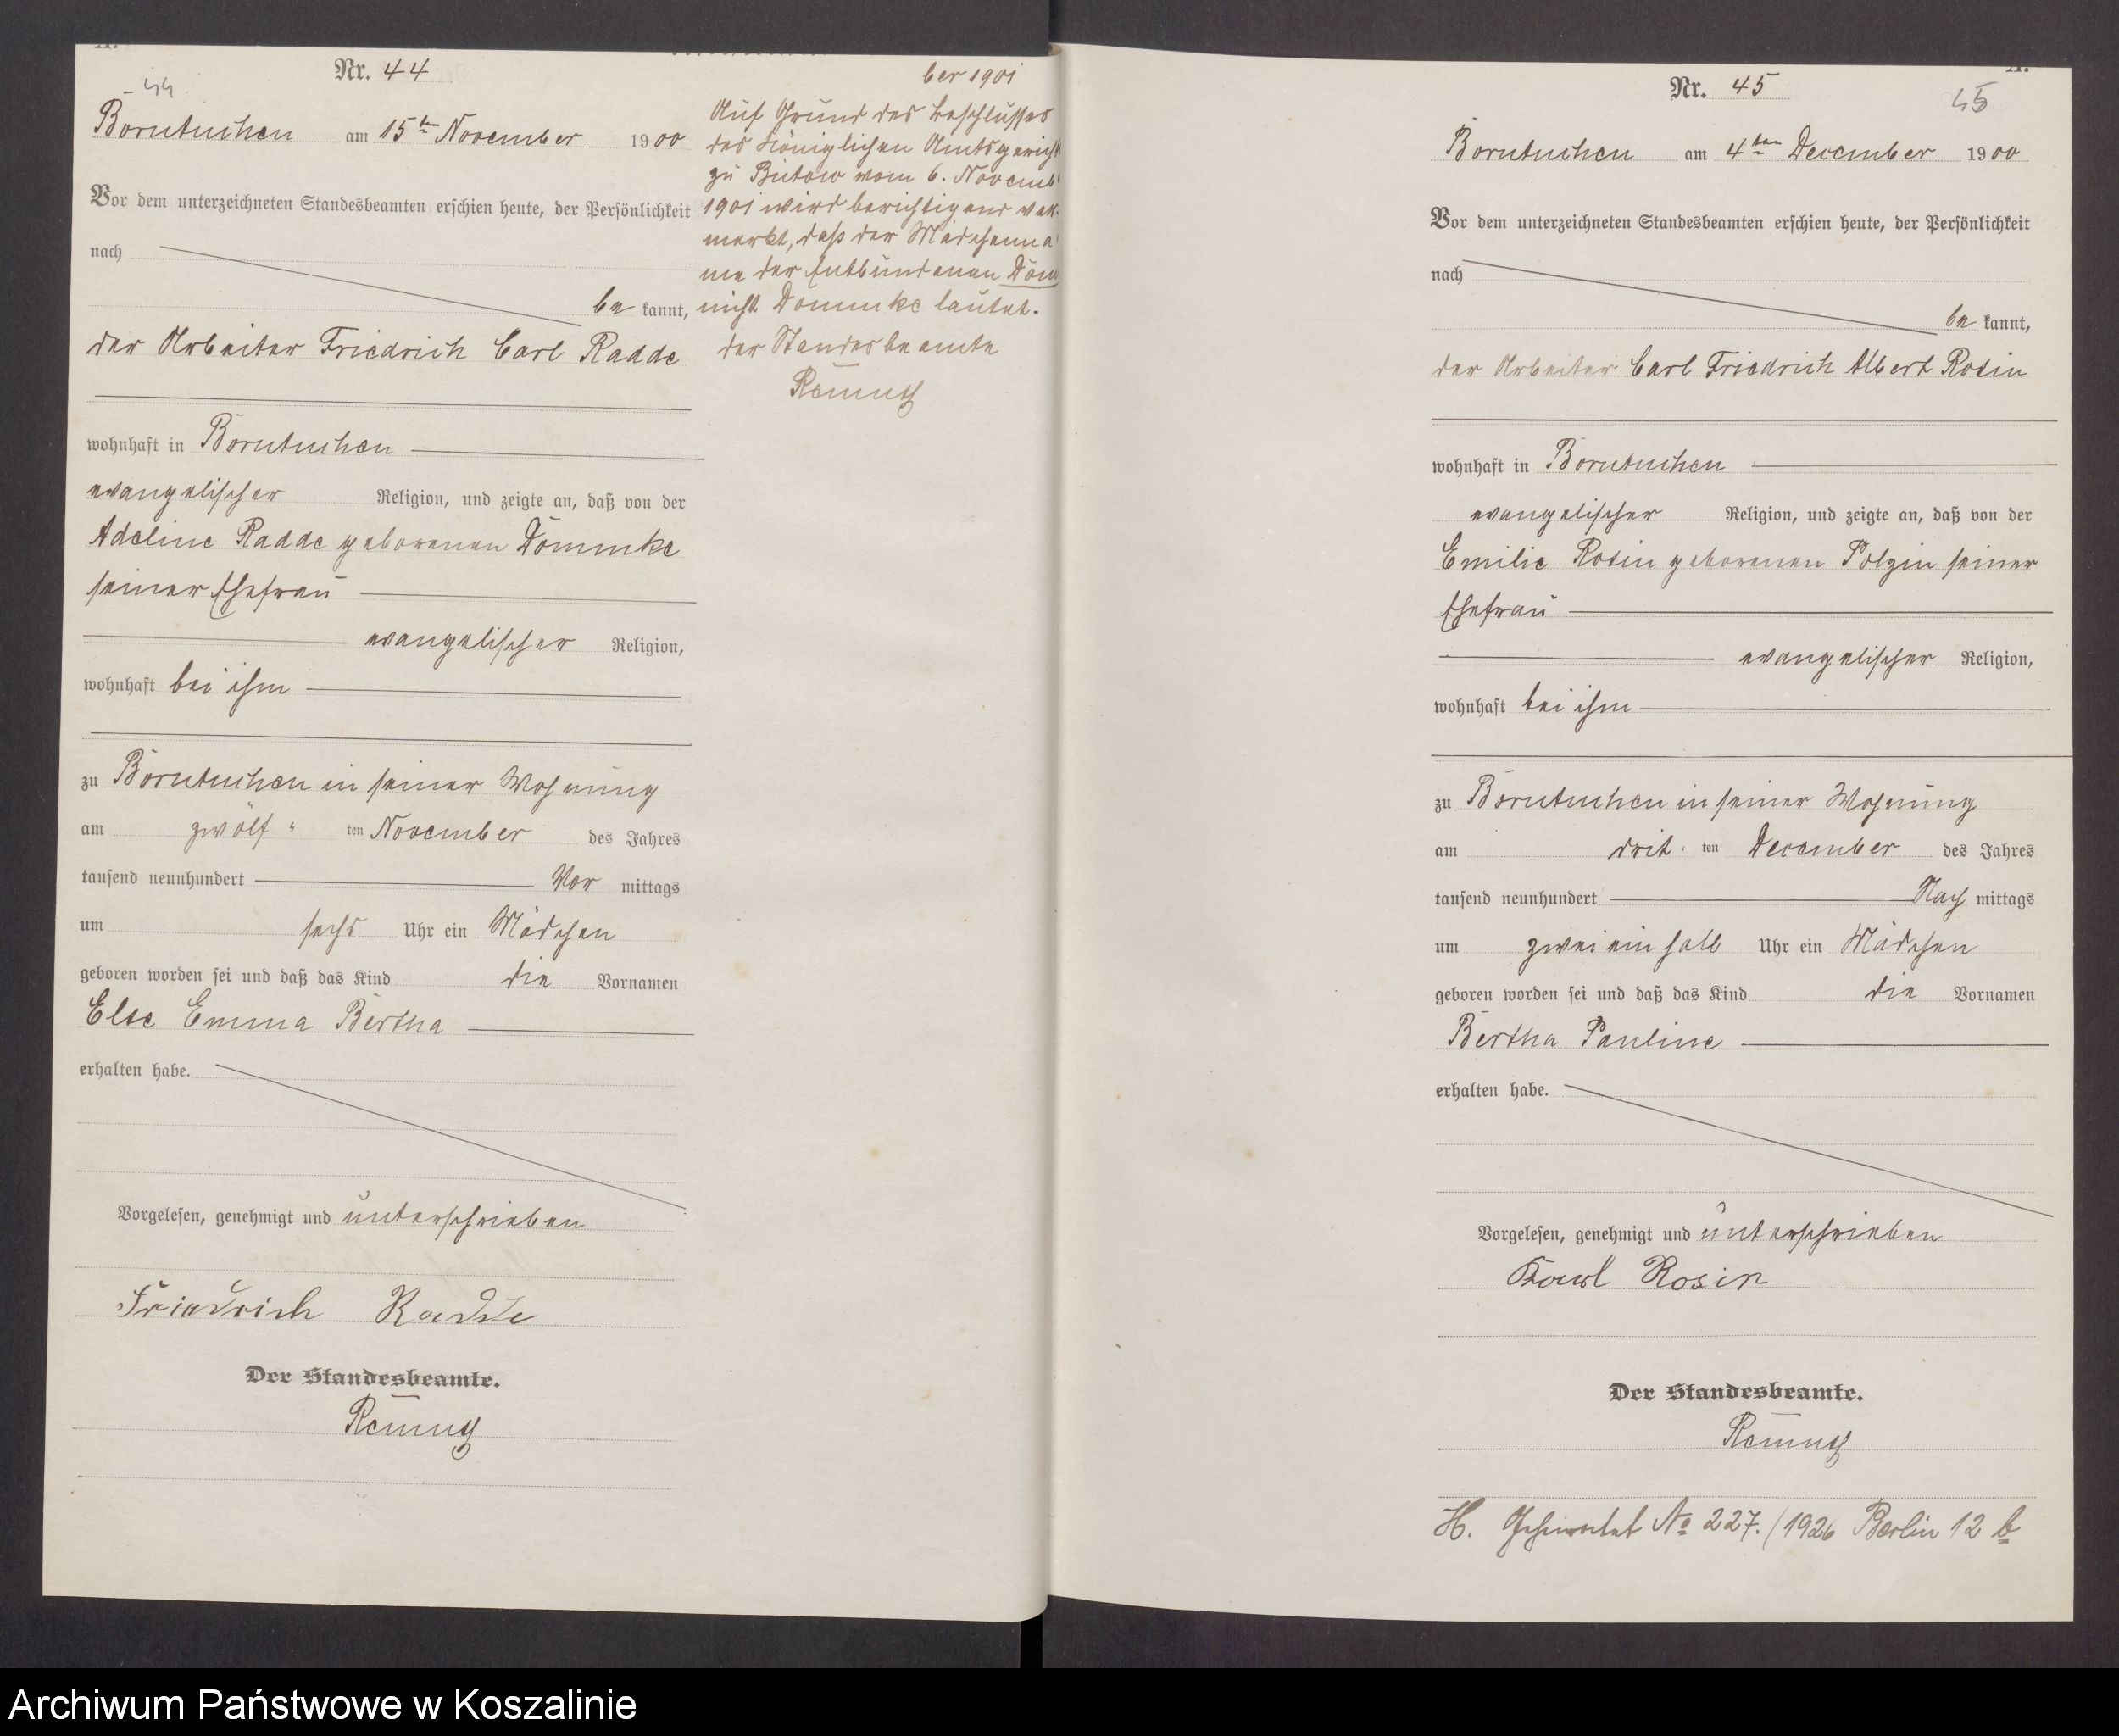 Nr. 44
44
Borntuchen am 15ten November 1900
Vor dem unterzeichneten Standesbeamten erschien heute, der Persönlichkeit
nach
be kannt,
der Arbeiter Friedrich Carl Radde
wohnhaft in Borntuchen
evangelischer Religion, und zeigte an, daß von der
Adeline Radde geborenen Dommke
seiner Ehefrau
evangelischer Religion,
wohnhaft bei ihm
zu Borntuchen in seiner Wohnung
am zwölf ten November des Jahres
tausend neunhundert Vor mittags
um sechs Uhr ein Mädchen
geboren worden sei und daß das Kind die Vornamen
Else Emma Bertha
erhalten habe.
Vorgelesen, genehmigt und unterschrieben
Friedrich Radde
Der Standesbeamte.
ber 1901
Auf Grund des Beschlusses
des Königlichen Amtsgericht
zu Bütow vom 6. Novemb
1901 wird berichtigend ver-
merkt, daß der Mädchenna
me der Entbundenen Döm
nicht Dommke lautet.
der Standesbeamte
Nr. 45
45
Borntuchen am 4ten December 1900
Vor dem unterzeichneten Standesbeamten erschien heute, der Persönlichkeit
nach
be kannt,
der Arbeiter Carl Friedrich Albert Rosin
wohnhaft in Borntuchen
evangelischer Religion, und zeigte an, daß von der
Emilie Rosin geborenen Polzin seiner
Ehefrau
evangelischer Religion,
wohnhaft bei ihm
zu Borntuchen in seiner Wohnung
am drit ten December des Jahres
tausend neunhundert Nach mittags
um zwei ein halb Uhr ein Mädchen
geboren worden sei und daß das Kind die Vornamen
Bertha Pauline
erhalten habe.
Vorgelesen, genehmigt und unterschrieben
Karl Rosin
Der Standesbeamte.
H. Geheiratet No 227./1926 Berlin 12 b
Archiwum Państwowe w Koszalinie